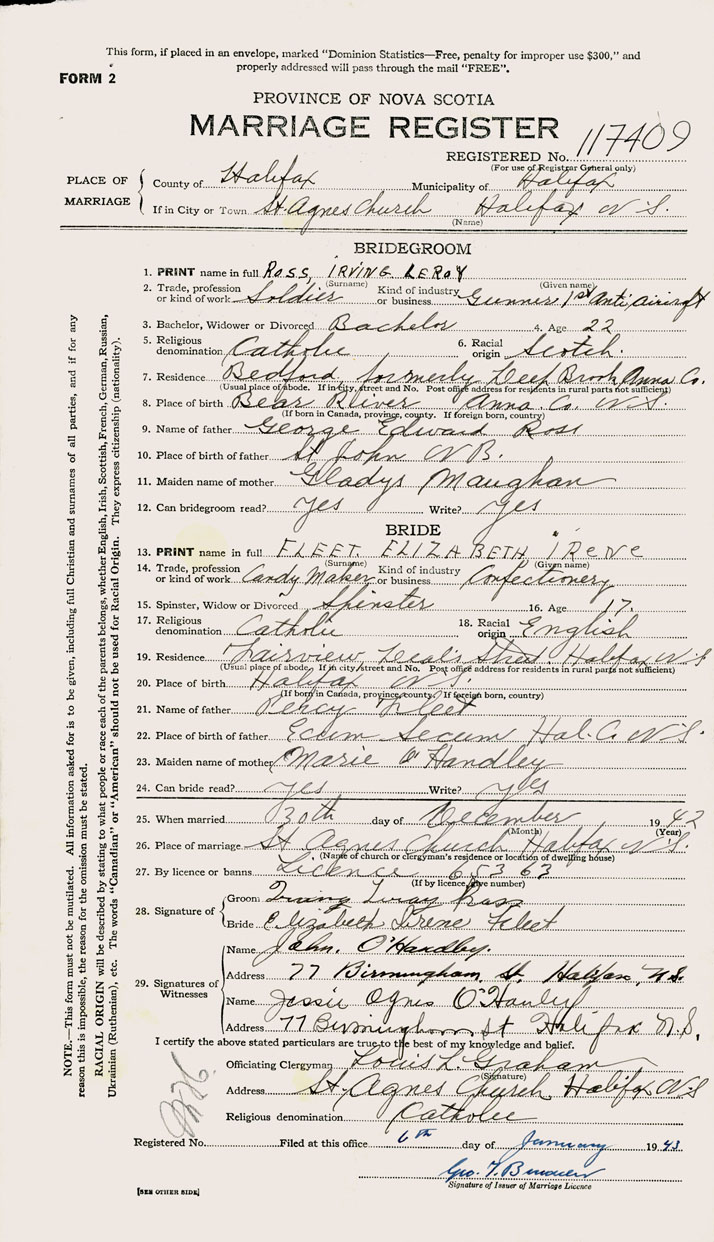 This form, if placed in an envelope, marked "Dominion Statistics—Free, penalty for improper use $300," and
properly addressed will pass through the mail "FREE".
FORM 2
PROVINCE OF NOVA SCOTIA
MARRIAGE REGISTER
REGISTERED No. 117409
(For use of Registrar General only)
PLACE OF MARRIAGE
County of Halifax Municipality of Halifax
If in City or Town St. Agnes Church Halifax N.S.
(Name)
BRIDEGROOM
1. PRINT name in full ROSS, IRVING LEROY
(Surname) (Given name)
2. Trade, profession or kind of work Soldier Kind of industry or business Gunner 1st Anti Aircraft
3. Bachelor, Widower or Divorced Bachelor 4. Age 22
5. Religious denomination Catholic 6. Racial origin Scotch.
7. Residence Bedford, formerly Deep Brook Anna Co.
(Usual place of abode. If in city, street and No. Post office address for residents in rural parts not sufficient)
8. Place of birth Bear River Anna. Co. N.S.
(If born in Canada, province, county. If foreign born, country)
9. Name of father George Edward Ross
10. Place of birth of father St John N.B.
11. Maiden name of mother Gladys Maughan
12. Can bridegroom read? Yes Write? Yes
BRIDE
13. PRINT name in full FLEET. ELIZABETH IRENE
(Surname) (Given name)
14. Trade, profession or kind of work Candy Maker Kind of industry or business Confectionery
15. Spinster, Widow or Divorced Spinster 16. Age 17.
17. Religious denomination Catholic 18. Racial origin English
19. Residence Fairview Halifax N.S
(Usual place of abode. If in city, street and No. Post office address for residents in rural parts not sufficient)
20. Place of birth Halifax N.S.
(If born in Canada, province, county. If foreign born, country)
21. Name of father Percy Fleet
22. Place of birth of father Ecum Secum Hal. Co N.S.
23. Maiden name of mother Marie O'Handley
24. Can bride read? yes Write? yes
25. When married 30th day of December 1942
(Month) (Year)
26. Place of marriage St Agnes Church Halifax N.S.
(Name of church or clergyman's residence or location of dwelling house)
27. By licence or banns Licence 65363
(If by licence, give number)
28. Signature of
Groom Irving Leroy Ross
Bride Elizabeth Irene Fleet
29. Signatures of Witnesses
Name John. O'Handley.
Address 77 Birmingham St. Halifax, N.S.
Name Jessie Agnes O'Hanley
Address 77 Birmingham St Halifax N.S.
I certify the above stated particulars are true to the best of my knowledge and belief.
Officiating Clergyman Louis L. Graham
(Signature)
Address St. Agnes Church Halifax N.S
Religious denomination Catholic
Registered No. Filed at this office 6th day of January 1943
Geo. T.
Signature of Issuer of Marriage Licence
[SEE OTHER SIDE]
NOTE.—This form must not be mutilated. All information asked for is to be given, including full Christian and surnames of all parties, and if for any
reason this is impossible, the reason for the omission must be stated.
RACIAL ORIGIN will be described by stating to what people or race each of the parents belongs, whether English, Irish, Scottish, French, German, Russian,
Ukrainian (Ruthenian), etc. The words "Canadian" or "American" should not be used for Racial Origin. They express citizenship (nationality).